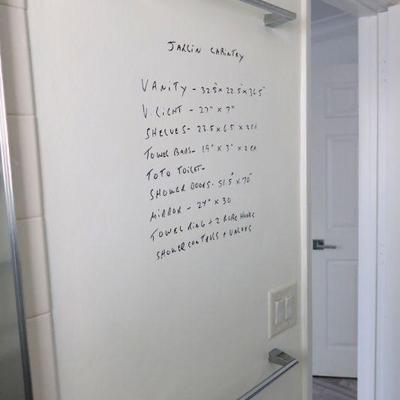 VANITY - 32.5" x 22.5" x 36.5"
V. LIGHT - 27" x 7"
SHELVES - 23.5 x 6.5 x 2 EA
TOWEL BARS - 19" x 3" x 2 EA
TOTO TOILET -
SHOWER DOORS - 51.5" x 70"
MIRROR - 24" x 30
TOWEL RING + 2 ROBE HOOKS
SHOWER CONTROLS + VALVES